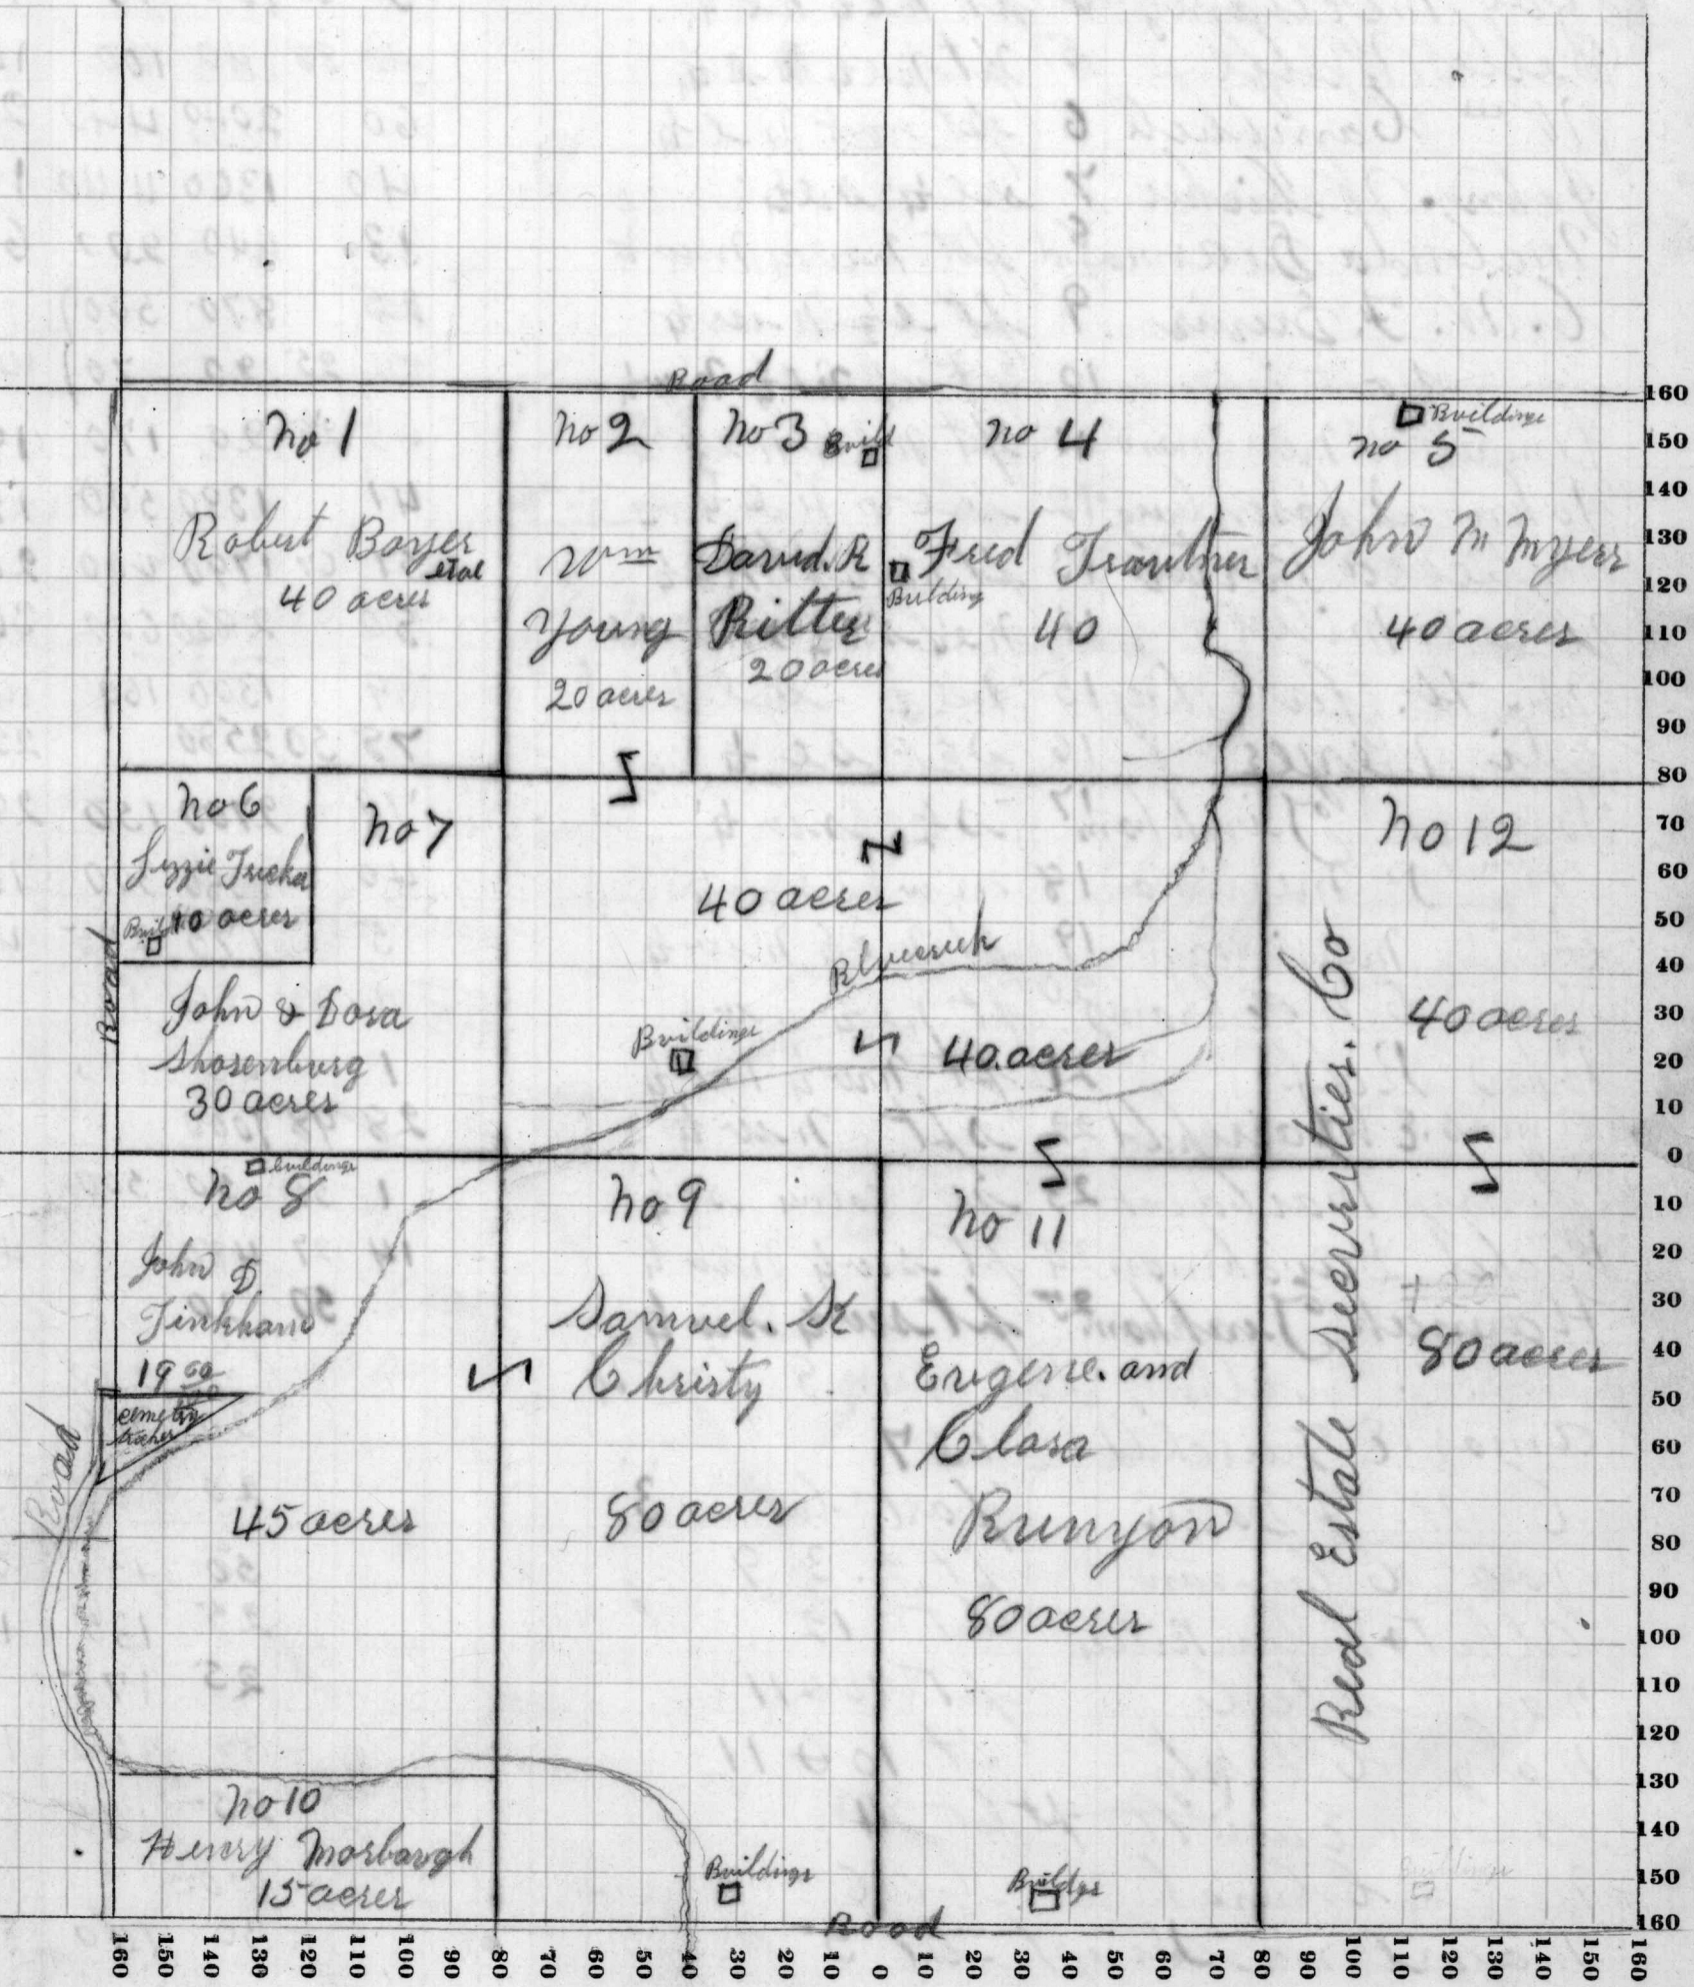 Road
no 1
Robert Boyer
etal
40 acres
no 2
Wm
Young
20 acres
no 3
Build
David. R
Ritter
20 acres
no 4
Fred Trautner
Building
40
Buildings
no 5
John M Myers
40 acres
no 6
Lizzie Tucker
10 acres
Build
no 7
John & Dora
Shosenburg
30 acres
40 acres
Buildings
40.acres
no 12
40 acres
80 acres
Real Estate Securities. Co
Road
buildings
no 8
John D
Tinkham
19
cemetry
Road
45 acres
no 9
Samuel. K
Christy
80 acres
no 11
Eugene. and
Clara
Runyon
80 acres
no 10
Henry Morbaugh
15 acres
Buildings
Buildgs
Buildings
Road
160
150
140
130
120
110
100
90
80
70
60
50
40
30
20
10
0
10
20
30
40
50
60
70
80
90
100
110
120
130
140
150
160
160 150 140 130 120 110 100 90 80 70 60 50 40 30 20 10 0 10 20 30 40 50 60 70 80 90 100 110 120 130 140 150 160